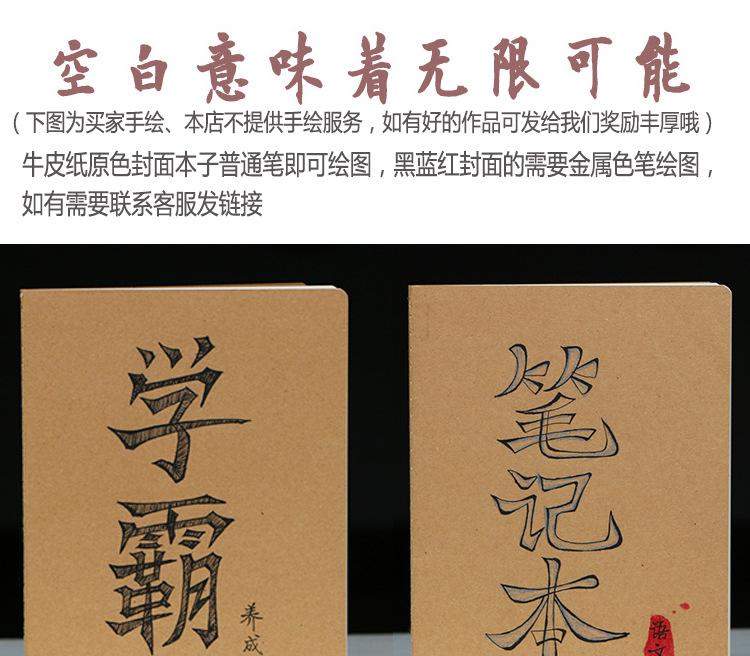 空白意味着无限可能
（下图为买家手绘、本店不提供手绘服务，如有好的作品可发给我们奖励丰厚哦）
牛皮纸原色封面本子普通笔即可绘图，黑蓝红封面的需要金属色笔绘图，
如有需要联系客服发链接
学霸
养成
笔记本
语文